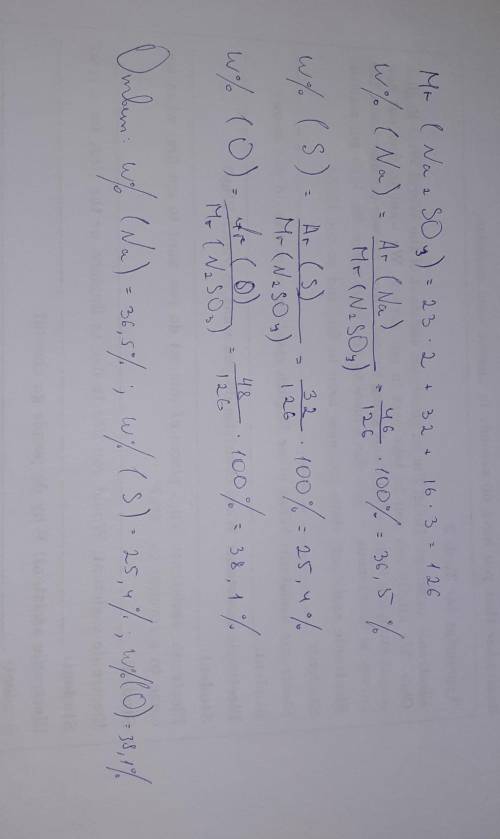 Mr (Na₂SO₃) = 23 · 2 + 32 + 16 · 3 = 126
W% (Na) = Ar (Na) / Mr (N₂SO₃) = 46 / 126 · 100% = 36,5 %
W% (S) = Ar (S) / Mr (N₂SO₃) = 32 / 126 · 100% = 25,4 %
W% (O) = Ar (O) / Mr (N₂SO₃) = 48 / 126 · 100% = 38,1 %
Ответ: W% (Na) = 36,5% ; W% (S) = 25,4% ; W% (O) = 38,1%